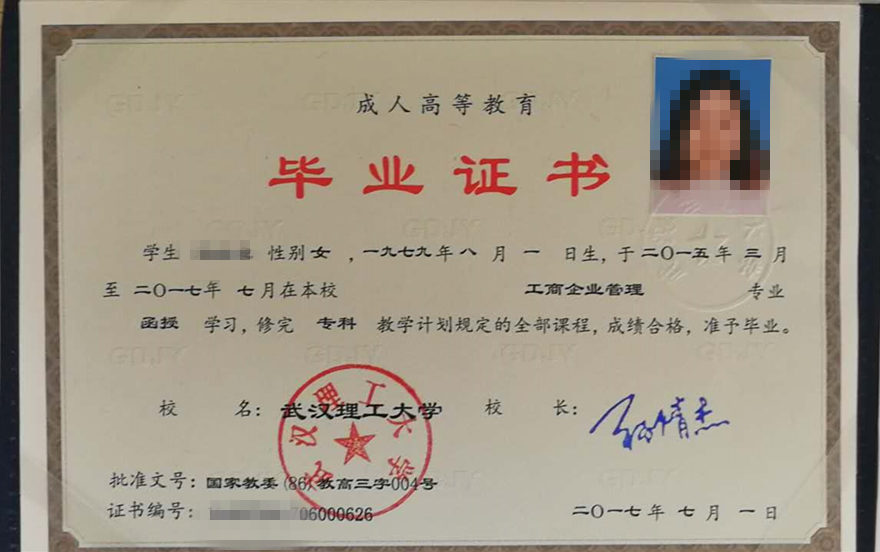 成人高等教育
毕业证书
学生 性别 女 ，一九七九年 八 月 一 日生，于 二〇一五年 三 月
至 二〇一七年 七 月在本校 工商企业管理 专业
函授 学习，修完 专科 教学计划规定的全部课程，成绩合格，准予毕业。
校 名：武汉理工大学 校 长：
武汉理工大学
批准文号：国家教委(86)教高三字004号
证书编号： 06000626 二〇一七年 七 月 一 日